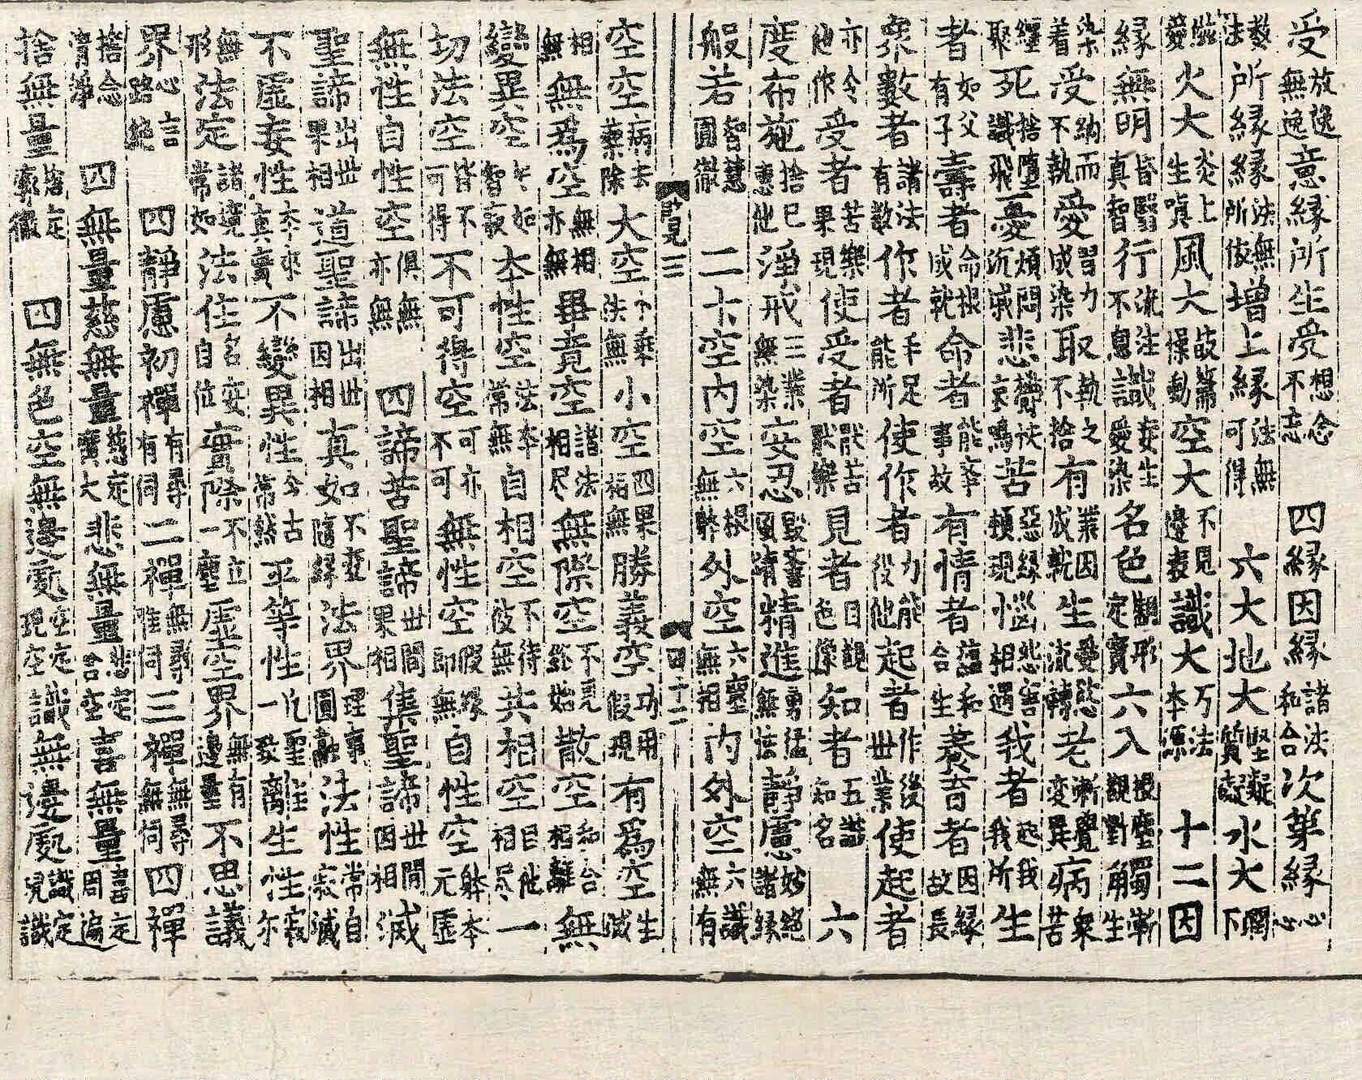 受放逸無逸意緣所生受想念不忘 四緣因緣諸法和合次第緣心心
數法所緣緣法無緣所依增上緣法無可得 六大地大堅礙質礙水大潤下
火大炎上生嗔風大鼓籥操動空大不見邊表識大万法本源 十二因
緣無明皆翳真智行流注不息識妄生愛染名色韶形定實六入根塵觀對觸嶄用生
染着受納而不執愛習力成染取執之不捨有業因成就生愛慾流轉老漸覺變異病衆苦
纏聚死捨墮識飛憂煩悶沉慼悲哀鳴苦惡緣頓現惱悲害相遇我者起我我所生
者如父有子壽者命根成就命者能率事故有情者蘊和合生養育者因緣故長
界數者諸法有數作者手足能所使作者力能役他起者作後世業使起者
亦令他作受者苦樂果現使受者厭苦厭樂見者目觀色像知者五識知名 六
度布施捨已惠他淨戒三業無染安忍毀辱順情精進勇猛無怯靜慮妙絕諸緣
般若智慧圓徹 二十空內空六根無幹外空六塵無相內外空六識無有
空空病去藥除大空下乘法無小空四果相無勝義空功用假現有為空生滅
相無無為空無相亦無畢竟空諸法相尽無際空不見終始散空和合相離無
變異空如如智寂本性空法本常無自相空不待彼無共相空自他相尽一
切法空皆不可得不可得空可亦不可無性空假緣即無自性空體本元虛
無性自性空俱無亦無 四諦苦聖諦世間果相集聖諦世間因相滅
聖諦出世果相道聖諦出世因相真如不變隨緣法界理事圓融法性常自寂滅
不虛妄性本來真實不變異性今古常然平等性凡聖一致離生性寂尒
無形法定諸境常如法住名安自位實際不立一塵虛空界無有邊量不思議
界心言路絕 四靜慮初禪有尋有伺二禪無尋惟伺三禪無尋無伺四禪
捨念清淨 四無量慈無量慈定廣大悲無量悲定含空喜無量喜定周遍
捨無量捨定寂徹 四無色空無邊處空定現空識無邊處識定現識